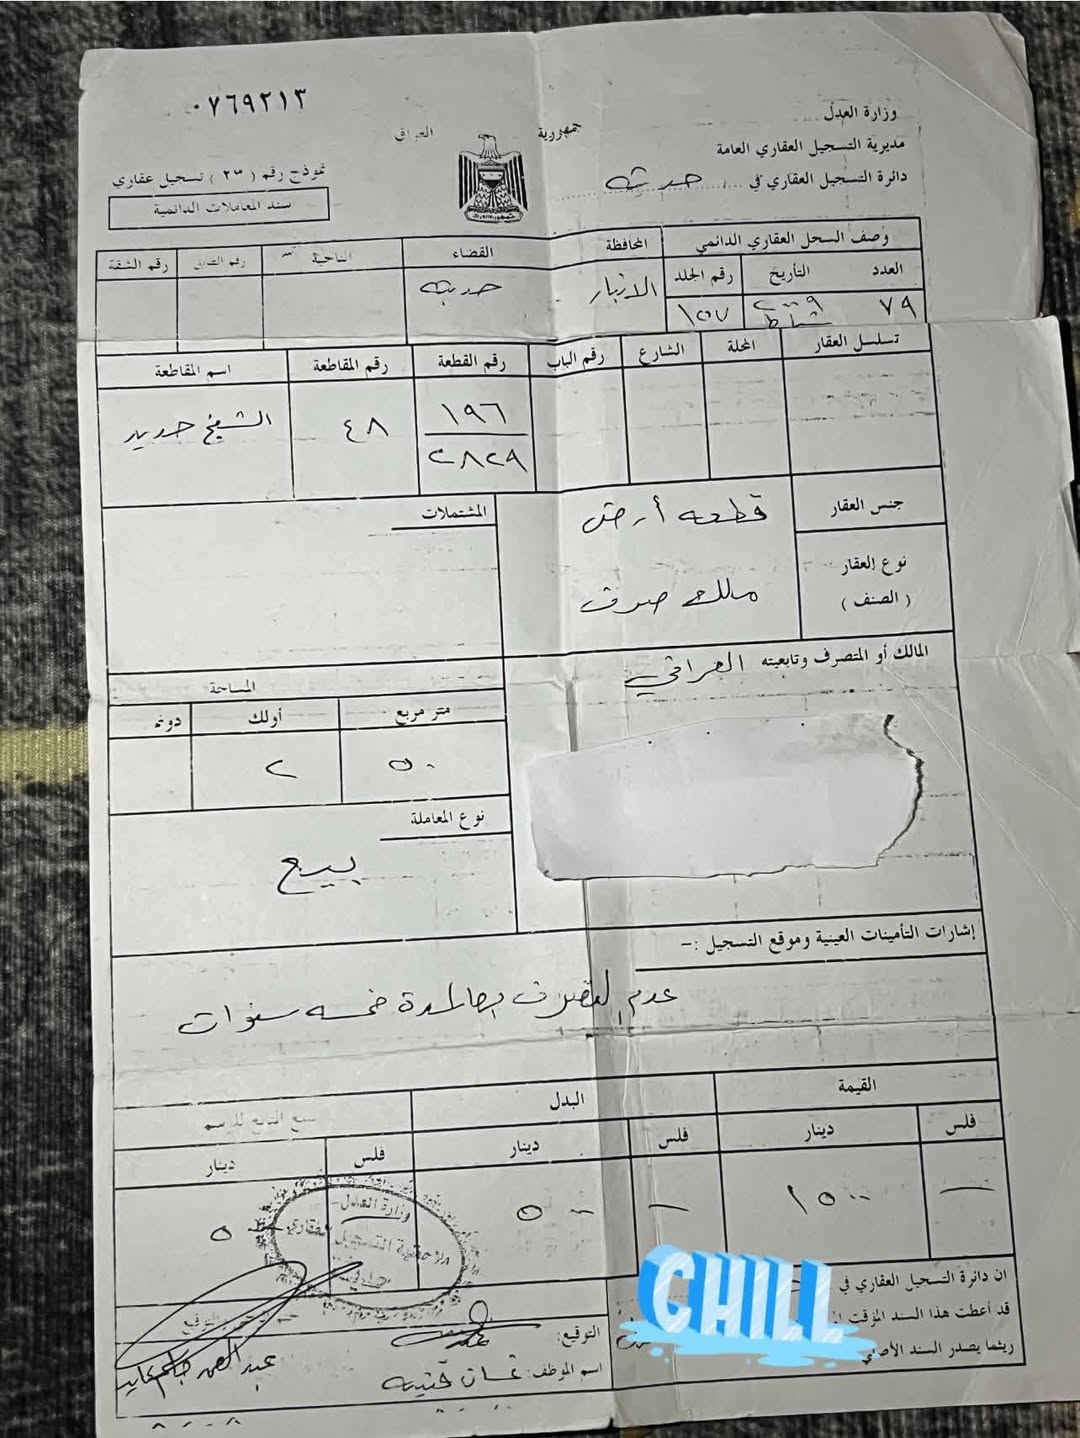 ٠٧٦٩٢١٣
جمهورية العراق
وزارة العدل
مديرية التسجيل العقاري العامة
دائرة التسجيل العقاري في حديثة
نموذج رقم (٢٣) تسجيل عقاري
سند المعاملات الدائمية
وصف السجل العقاري الدائمي
المحافظة
القضاء
الناحية
رقم الشقة
العدد
التأريخ
رقم المجلد
الانبار
حديثه
٧٩
شباط ٢٠٠٩
١٥٧
تسلسل العقار
المحلة
الشارع
رقم الباب
رقم القطعة
رقم المقاطعة
اسم المقاطعة
١٩٦
٢٨٢٩
٤٨
الشيخ حديد
جنس العقار
قطعه أرض
المشتملات
نوع العقار
(الصنف)
ملك صرف
المالك أو المتصرف وتابعيته العراقي
المساحة
متر مربع
أولك
دونم
٥٠
٢
نوع المعاملة
بيع
إشارات التأمينات العينية وموقع التسجيل :-
عدم التصرف بها لمدة خمسه سنوات
القيمة
البدل
فلس
دينار
فلس
دينار
فلس
دينار
١٥٠٠
٥٠٠
وزارة العدل
التسجيل العقاري
ان دائرة التسجيل العقاري في
قد أعطت هذا السند المؤقت
ريثما يصدر السند الأصلي
CHILL
التوقيع:
التوقيع
اسم الموظف: غسان قتيبه